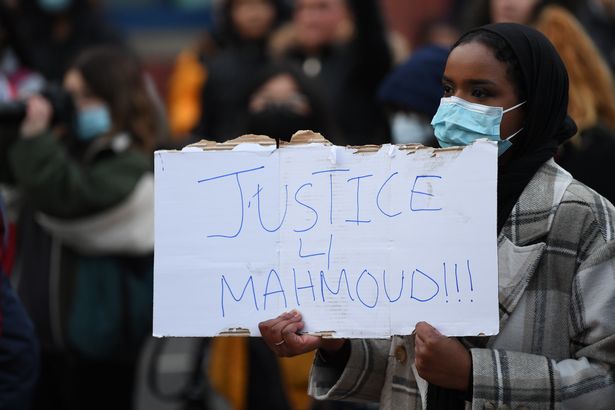 JUSTICE
4
MAHMOUD!!!